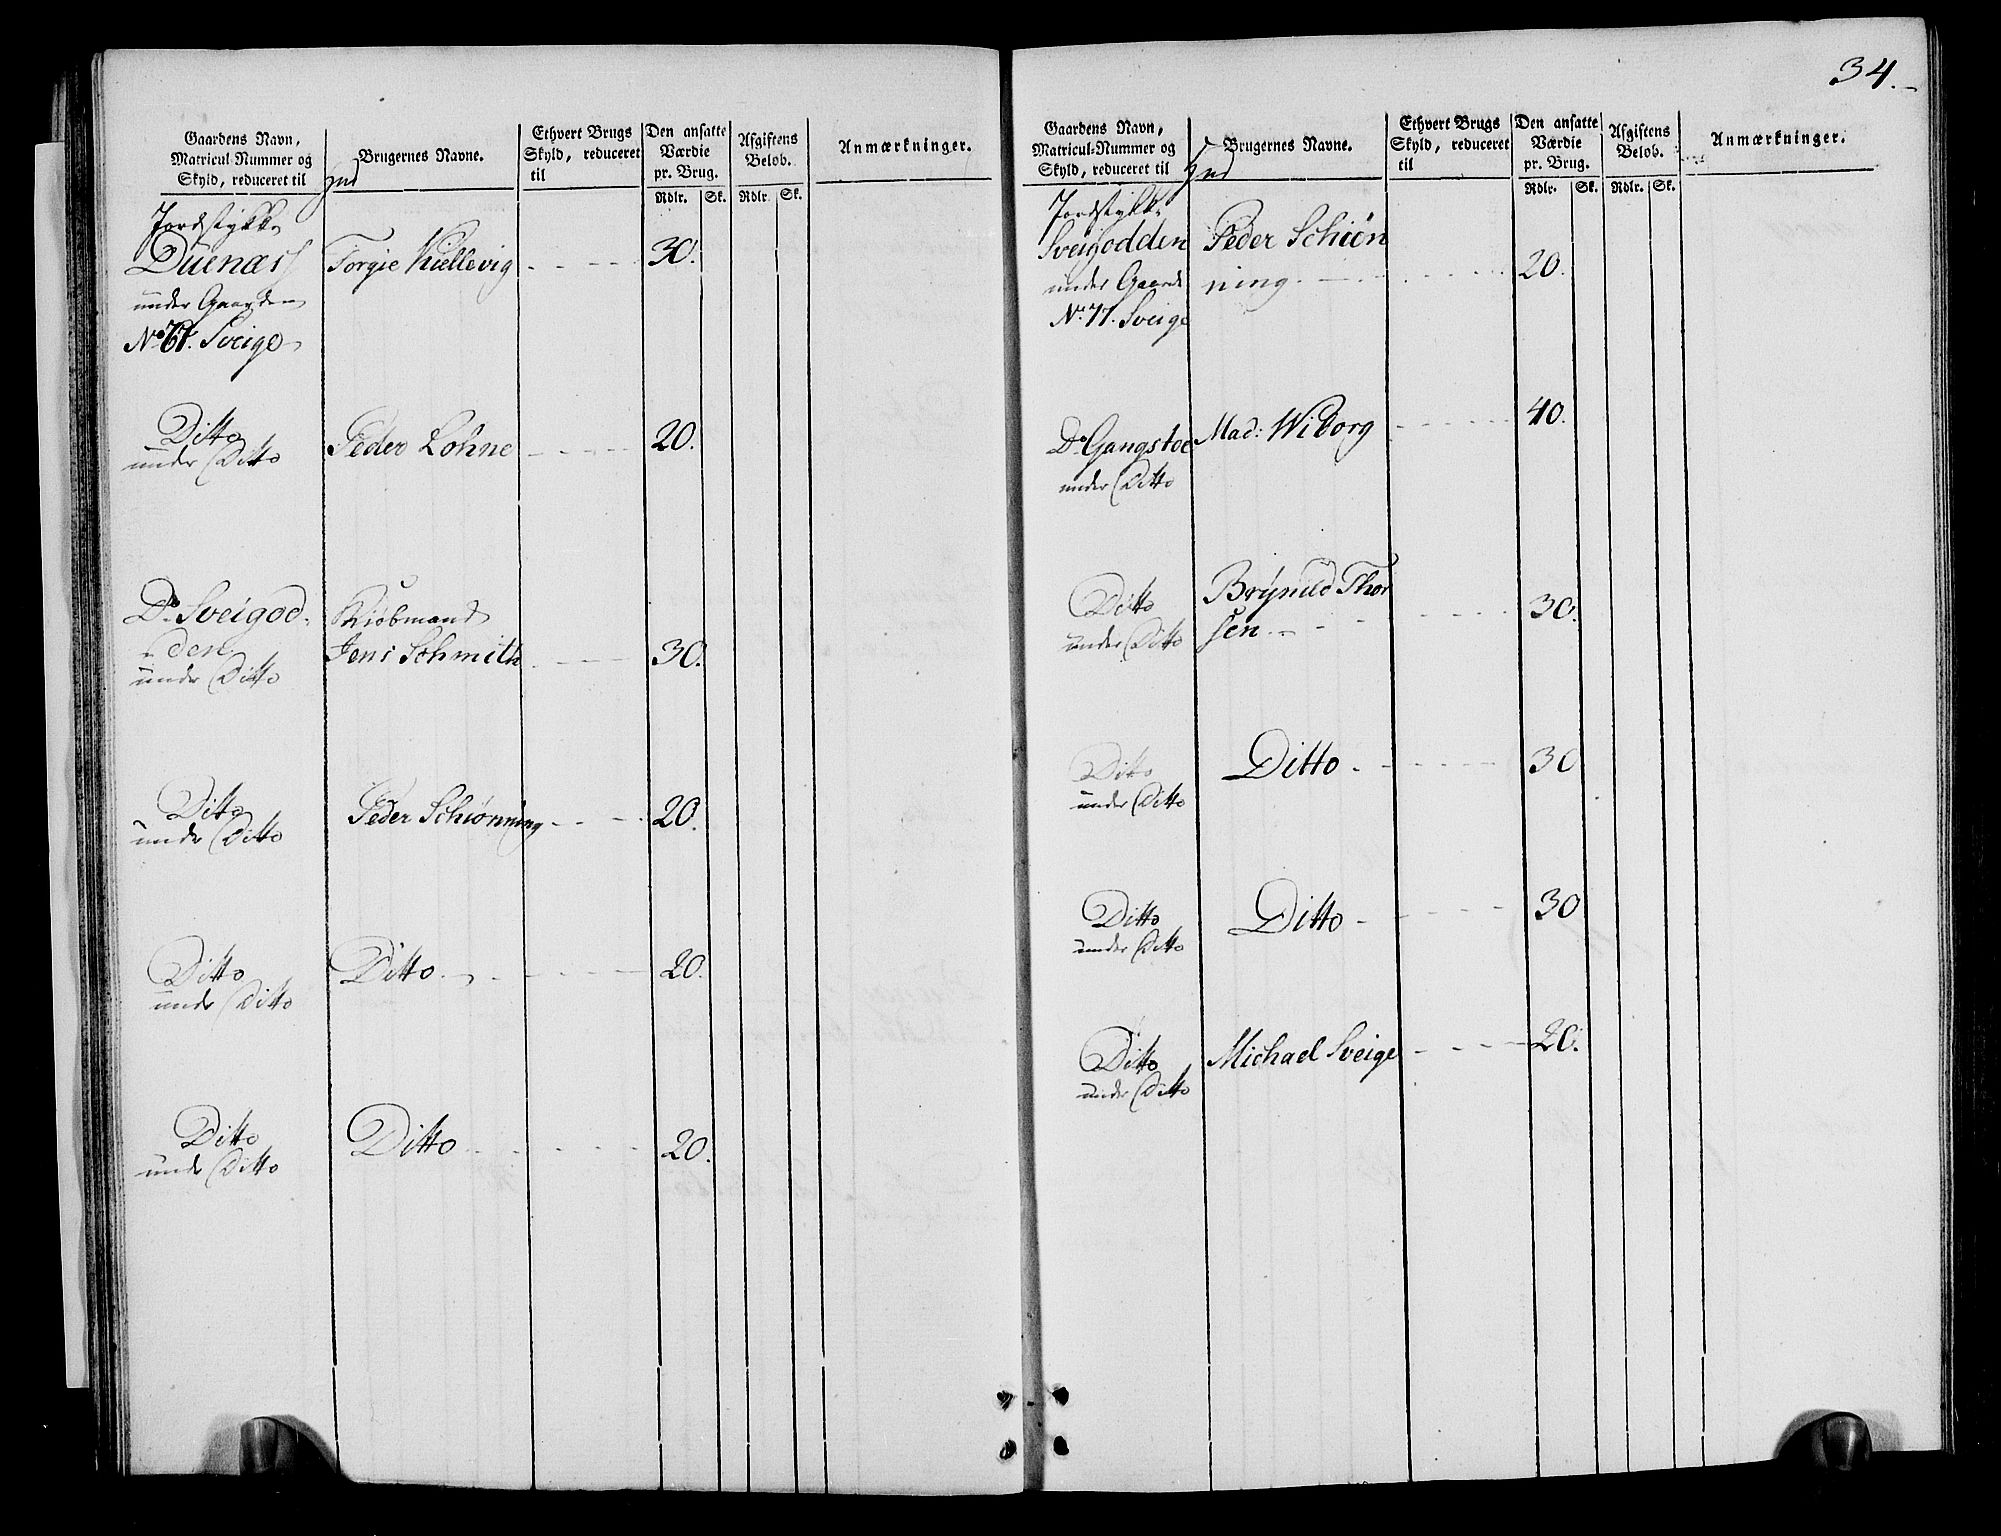 Gaardens Navn,
Matricul-Nummer og
Skyld, reduceret til
Hud
Brugernes Navne.
Ethvert Brugs
Skyld, reduceret
til
Den ansatte
Værdie
pr. Brug.
Rdlr. Sk.
Afgiftens
Beløb.
Rdlr. Sk.
Anmærkninger.
Jordstykke
Duenæs
under Gaarden
No. 77. Sveige
Torgie Kiellevig
30.
Ditto
under Ditto
Peder Lohne
20.
Do. Sveigod-
den
under Ditto
Kiøbmand
Jens Schmith
30.
Ditto
under Ditto
Peder Schiønning
20.
Ditto
under Ditto
Ditto
20.
Ditto
under Ditto
Ditto
20.
34.
Gaardens Navn,
Matricul-Nummer og
Skyld, reduceret til
Hud
Brugernes Navne.
Ethvert Brugs
Skyld, reduceret
til
Den ansatte
Værdie
pr. Brug.
Rdlr. Sk.
Afgiftens
Beløb.
Rdlr. Sk.
Anmærkninger.
Jordstykke
Sveigodden
under Gaarde
No. 77. Sveige
Peder Schiøn
ning
20.
Do. Gangstøe
under Ditto
Mad: Wiborg
40.
Ditto
under Ditto
Brynild Thor
sen
30.
Ditto
under Ditto
Ditto
30
Ditto
under Ditto
Ditto
30
Ditto
under Ditto
Michael Sveige
20.